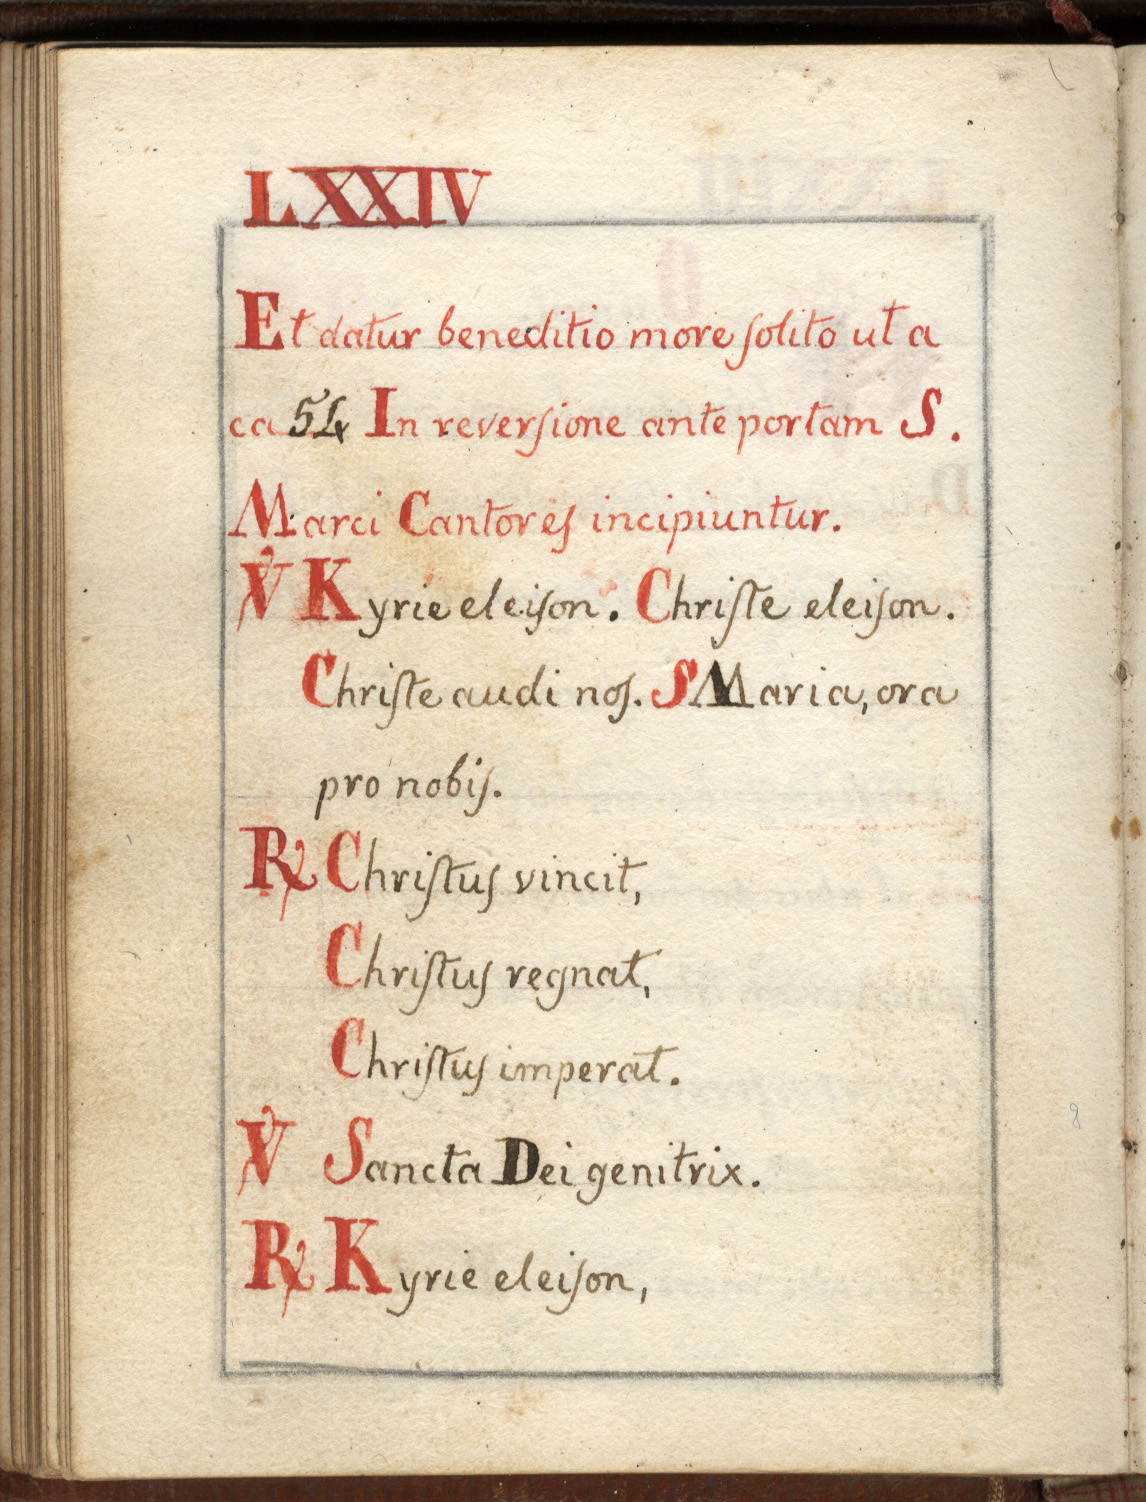 LXXIV
Et datur beneditio more ſolito ut a
ca 54 In reverſione ante portam S.
Marci Cantoreſ incipiuntur.
℣ Kyrie eleiſon. Chriſte eleiſon.
Chriſte audi noſ. S Maria, ora
pro nobiſ.
℟ Chriſtuſ vincit,
Chriſtuſ regnat,
Chriſtuſ imperat.
℣ Sancta Dei genitrix.
℟ Kyrie eleiſon,